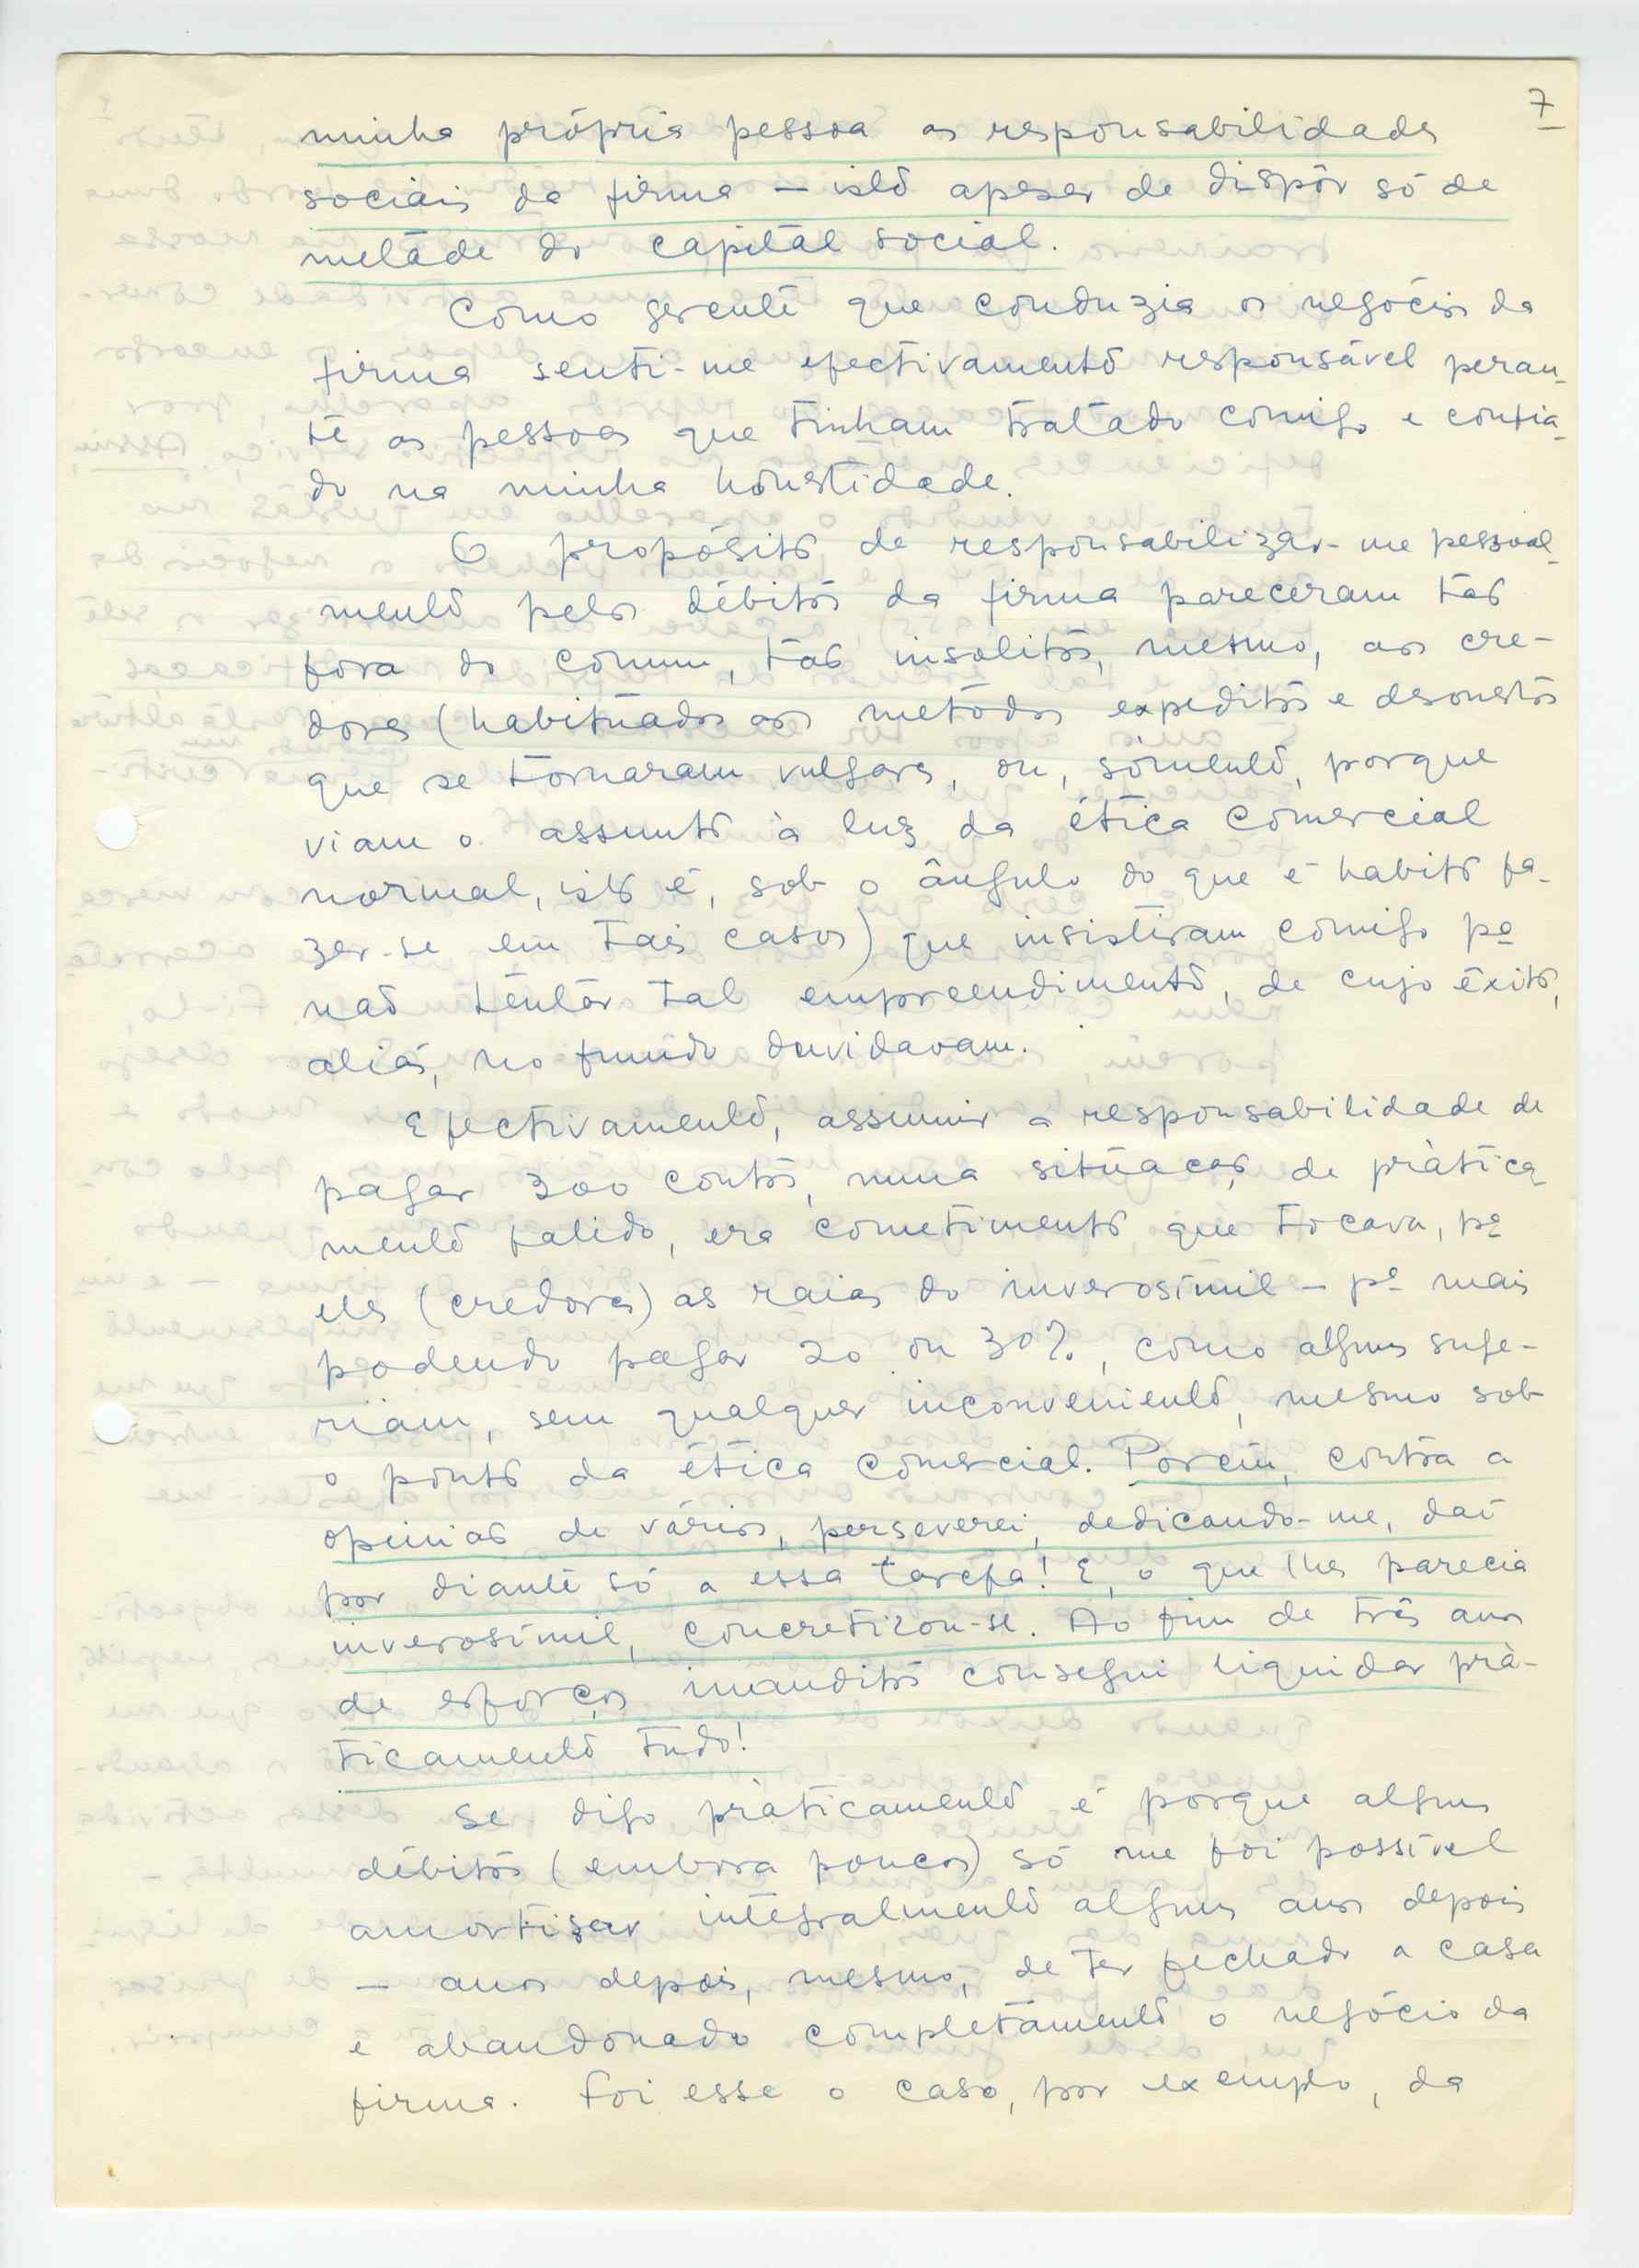 7
minha própria pessoa as responsabilidades
sociais da firma – isto apesar de dispôr só de
metade do capital social.
Como gerente que conduzia os negócios da
firma senti-me efectivamente responsável peran-
te as pessoas que tinham tratado comigo e confia-
do na minha honestidade.
O propósito de responsabilizar-me pessoal-
mente pelos débitos da firma pareceram tão
fora do comum, tão insolitos, mesmo, aos cre-
dores (habituados aos metodos expeditos e desonestos
que se tornaram vulgares, ou, sòmente, porque
viam o assunto à luz da ética comercial
normal, isto é, sob o ângulo do que é habito fa-
zer-se em tais casos) que insistiram comigo pª
não tentar tal empreendimento, de cujo êxito,
aliás, no fundo duvidavam.
Efectivamente, assumir a responsabilidade de
pagar 300 contos, numa situação de pràtica-
mente falido, era cometimento que tocava, pª
eles (credores) as raias do inverosímil – pª mais
podendo pagar 20 ou 30%, como alguns suge-
riam, sem qualquer inconveniente, mesmo sob
o ponto da ética comercial. Porém, contra a
opinião de vários, perseverei, dedicando-me, daí
por diante só a essa tarefa! E, o que lhes parecia
inverosímil, concretizou-se. Ao fim de três anos
de esforços inauditos consegui liquidar prà-
ticamente tudo!
Se digo pràticamente é porque alguns
débitos (embora poucos) só me foi possível
amortisar integralmente alguns anos depois
– anos depois, mesmo, de ter fechado a casa
e abandonado completamente o negócio da
firma. Foi esse o caso, por exemplo, da